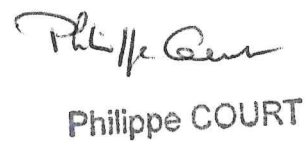 Philippe Court
Philippe COURT